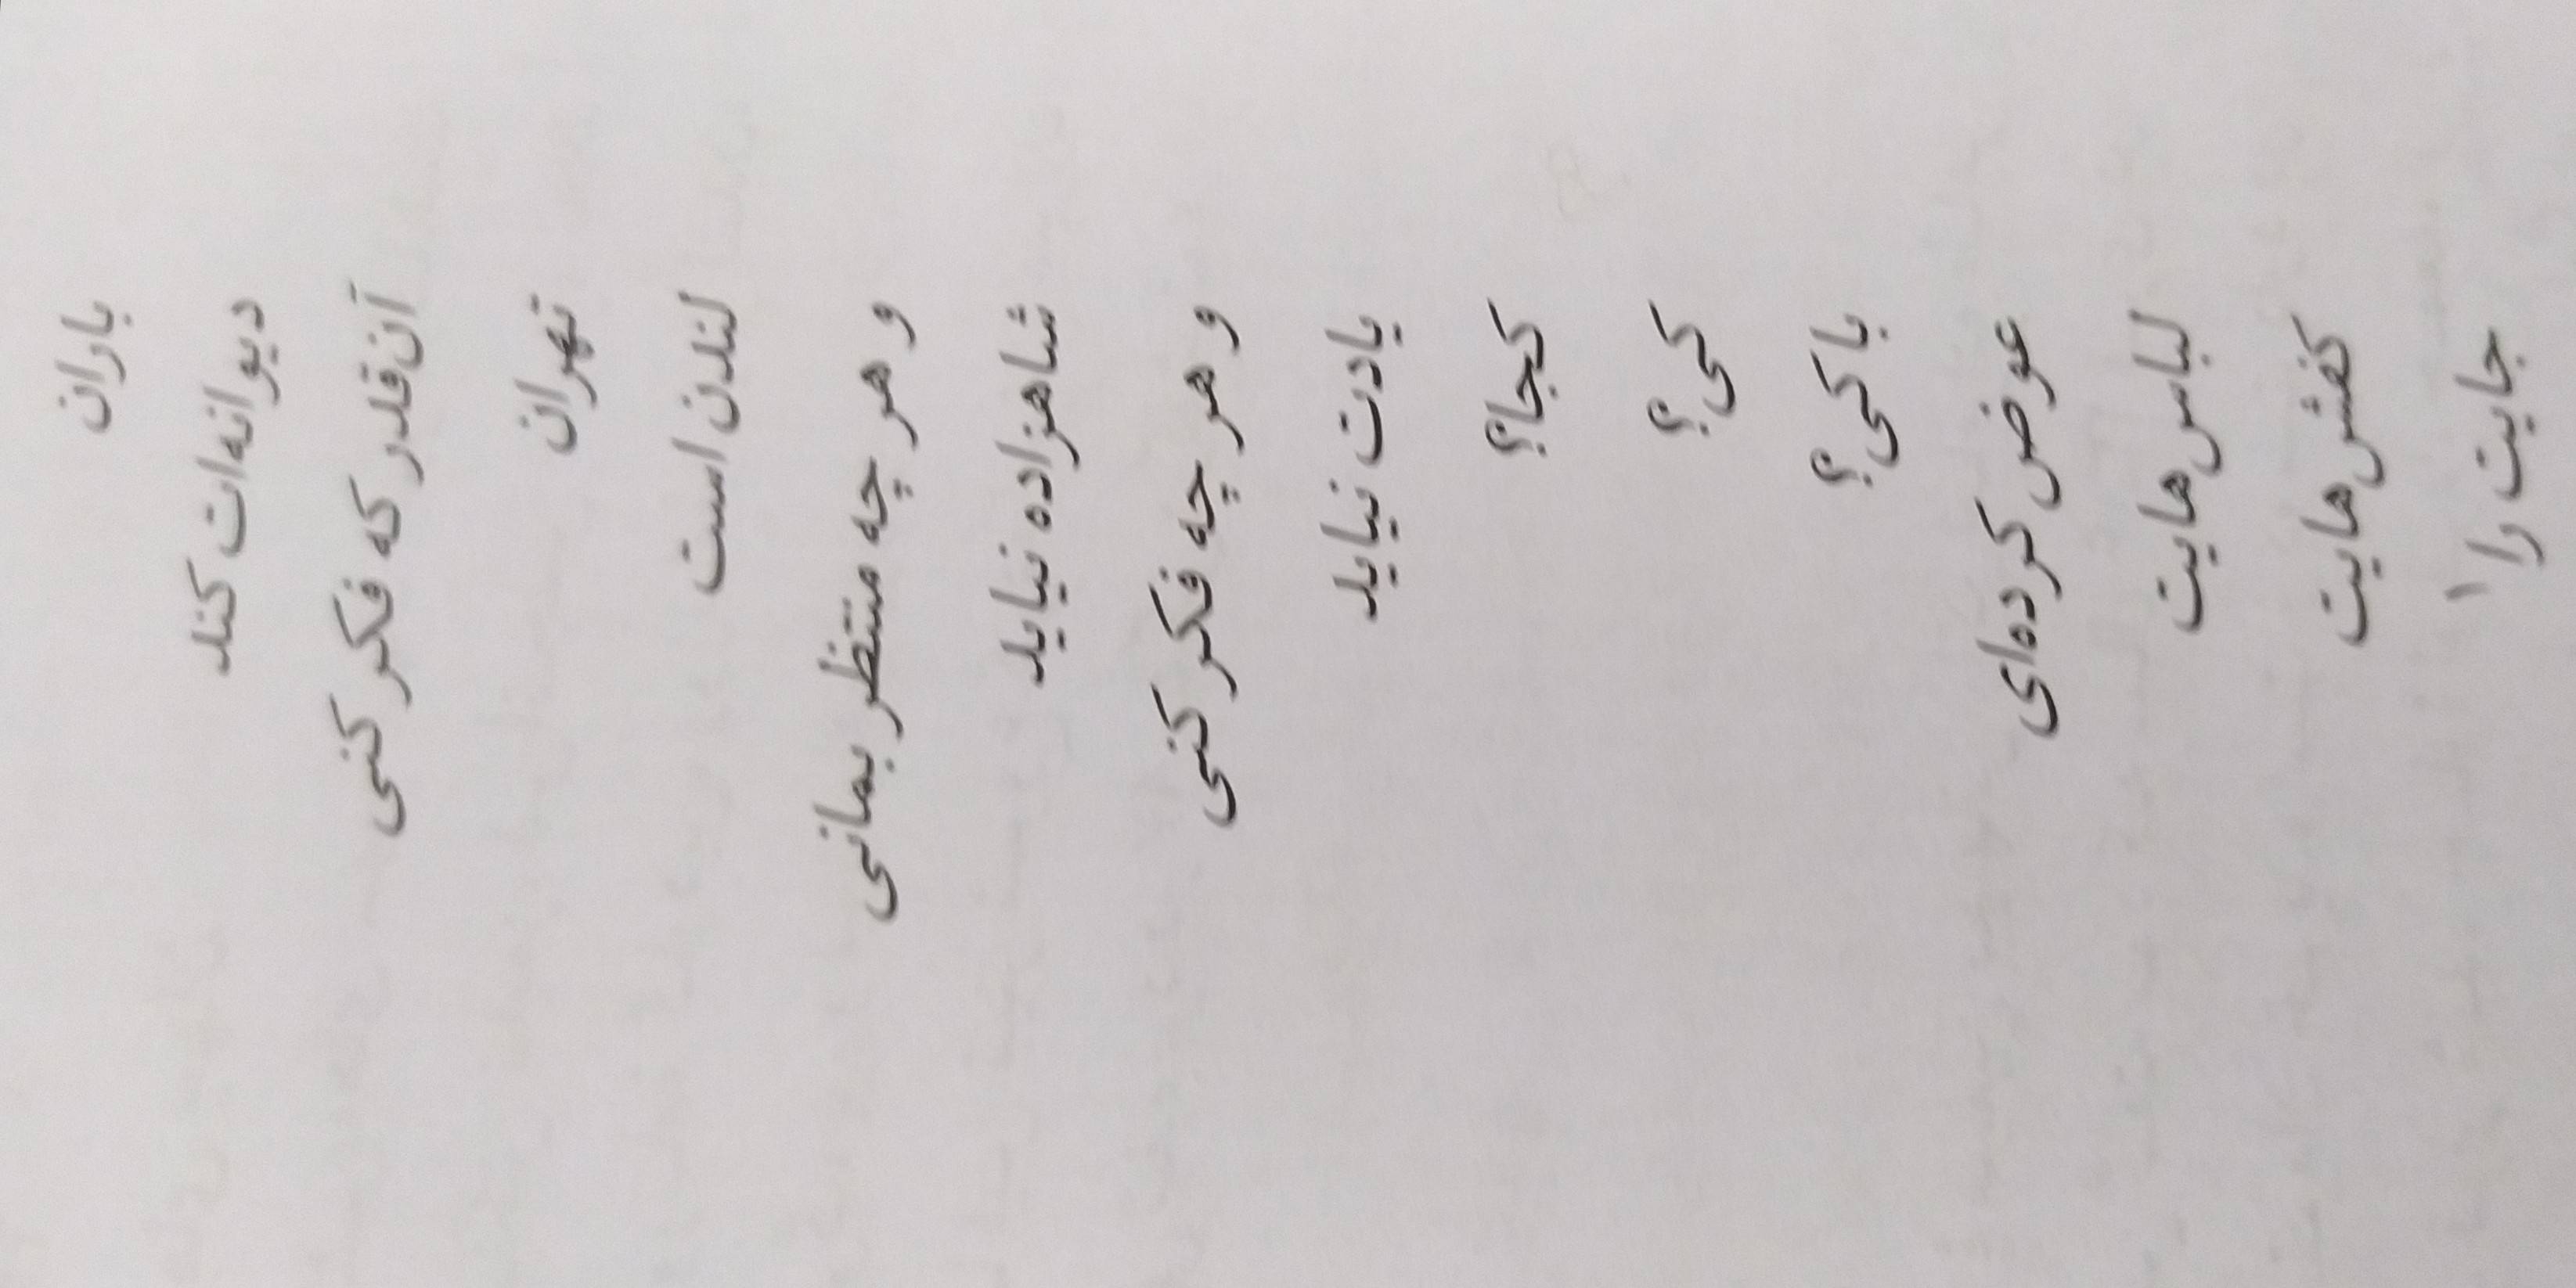 باران
دیوانه‌ات کند
آن‌قدر که فکر کنی
تهران
لندن است
و هر چه منتظر بمانی
شاهزاده نیاید
و هر چه فکر کنی
یادت نیاید
کجا؟
کی؟
با کی؟
عوض کرده‌ای
لباس‌هایت
کفش‌هایت
جایت را۱